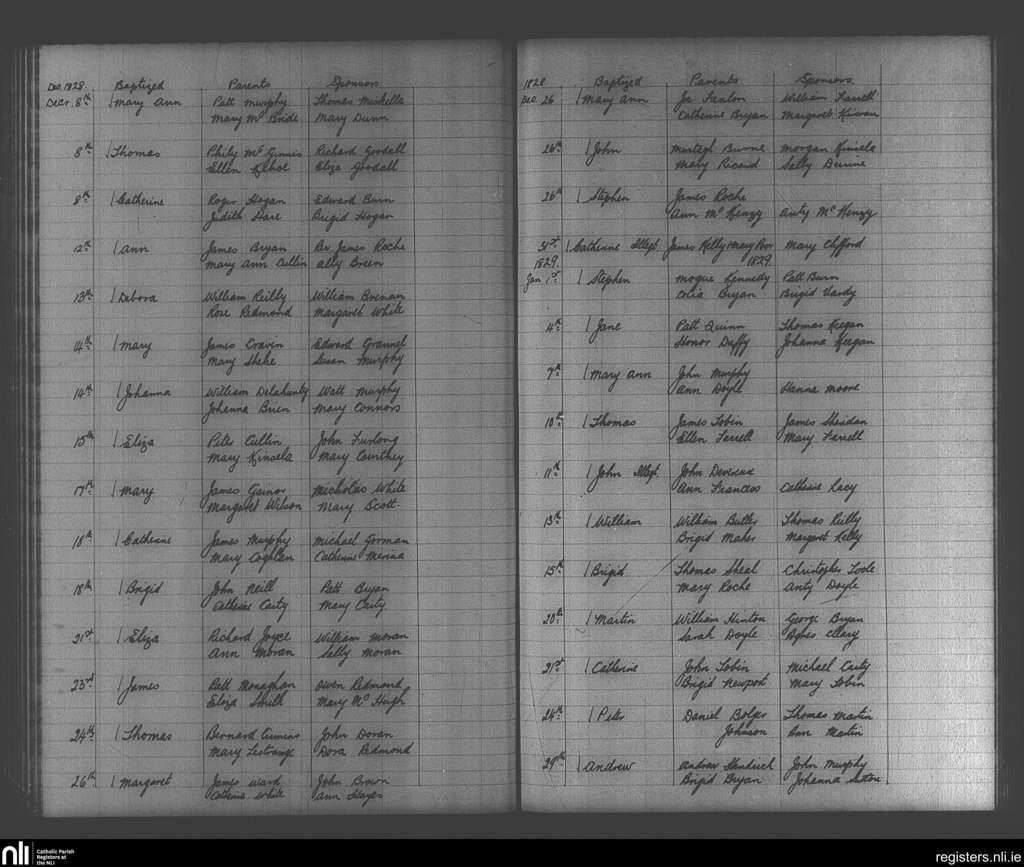 Dec. 1828. Baptized Parents Sponsors
Decr. 8th / Mary Ann Patt Murphy Thomas
Mary McBride Mary Dunn
8th / Thomas Phily McGinnes Richard Goodall
Ellen Eliza Goodall
8th / Catherine Roger Hogan Edward Burn
Judith Hare Brigid Hogan
12th / Ann James Bryan Rv James Roche
Mary Ann Cullin Ally Breen
13th / Debora William Reilly William Brenan
Rose Redmond Margaret White
14th / Mary James Craven Edward
Mary Susan Murphy
14th / Johanna William Delahunty Watt Murphy
Johanna Brien Mary Connors
15th / Eliza Peter Cullin John Furlong
Mary Kincela Mary Courtney
17th / Mary James Gainor Micholas White
Margaret Wilson Mary Scott.
18th / Catherine James Murphy Michael Gorman
Mary Coghlan Catherine
18th / Brigid John Neill Patt Bryan
Catherine Carty Mary Carty
21st / Eliza Richard Joyce William Moran
Ann Moran Sally Moran
23rd / James Patt Monaghan Owen Redmond
Eliza Smith Mary McHugh
24th / Thomas Bernard Cumins John Doran
Mary Lestrange Dora Redmond
26th / Margaret James Ward John Brown
Catherine White Ann Hayes
1828 Baptized Parents Sponsors
Dec. 26 / Mary Ann Js Hanlon William Farrell
Catherine Bryan Margaret Kirwan
26th / John Murtagh Burne Morgan Kincela
Mary Ricard Sally
26th / Stephen James Roche
Ann McKenzy Anty McKenzy
31st / Catherine Illegt. James Kelly Mary Poor Mary Clifford
1829. 1829
Jan 1st / Stephen Mogue Kennedy Patt Burn
Celia Bryan Brigid Vardy
4th / Jane Patt Quinn Thomas Keegan
Honor Duffy Johanna Keegan
7th / Mary Ann John Murphy
Ann Doyle Hanna Moore
10th / Thomas James Tobin James Sheridan
Ellen Farrell Mary Farrell
11th / John Illegt. John Devereux
Ann Frances Catherine Lacy
13th / William William Butler Thomas Reilly
Brigid Maher Margaret Kelly
15th / Brigid Thomas Sheal Christopher Toole
Mary Roche Anty Doyle
20th / Martin William Hinton George Bryan
Sarah Doyle Agnes Clary
21st / Catherine John Tobin Michael Carty
Brigid Newport Mary Tobin
24th / Peter Daniel Bolger Thomas Martin
Johnson Ann Martin
29th / Andrew Andrew John Murphy
Brigid Bryan Johanna Sutton
nli Catholic Parish
Registers at
the NLI
registers.nli.ie